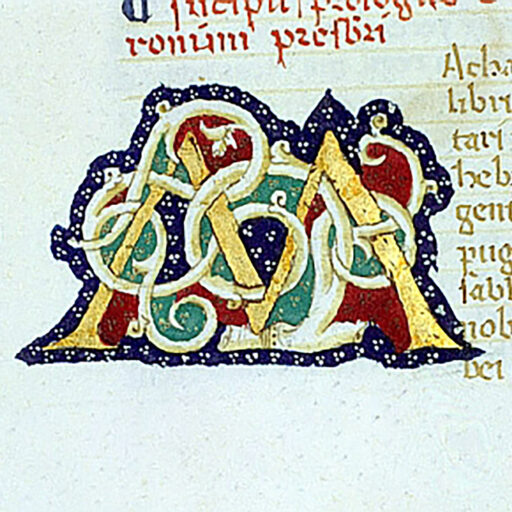 Incipit prologus
ronimi presbri
M
Acha
libri
tari
heb
gent
pug
sabb
nob
bei